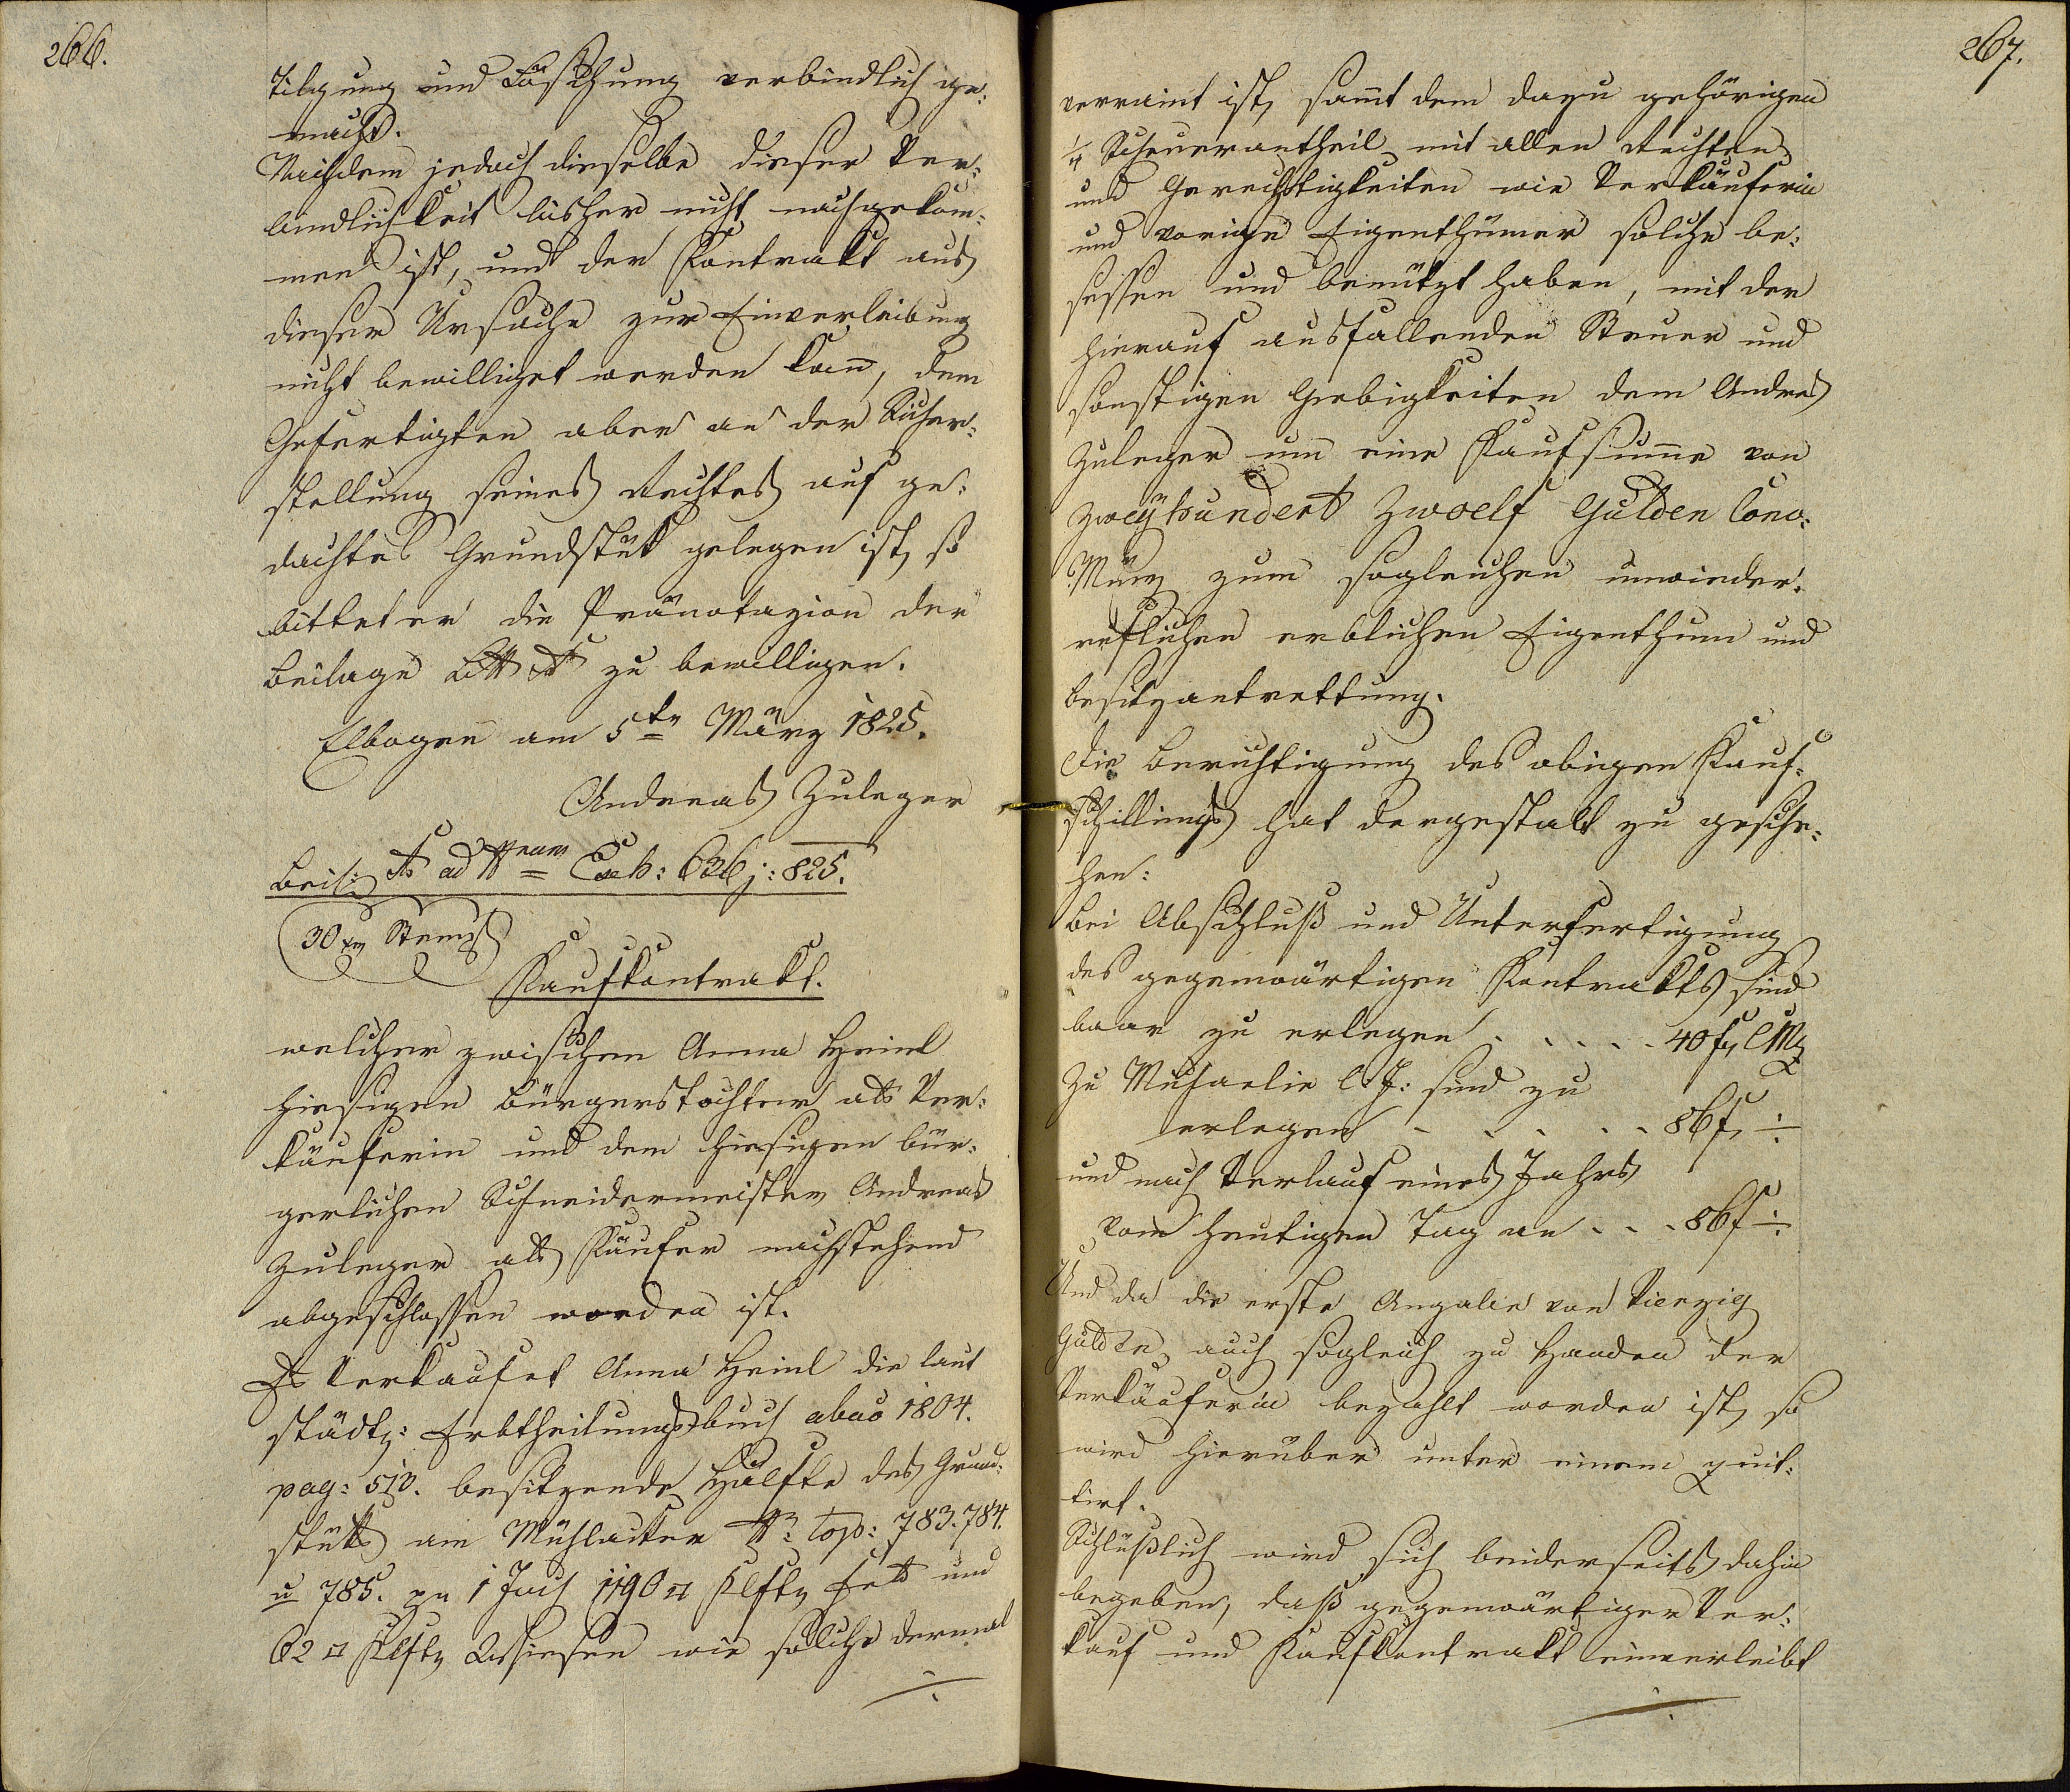 266.
Tilgung und Löschung verbindlich ge:
macht.
Nachdem jedoch dieselbe dieser Ver:
bindlichkeit bisher nicht nachgekom:
men ist, und der Kontrakt aus
dieser Ursache zur Einverleibung
nicht bewilliget werden kan̄, dem
Gefertigten aber an der Sicher:
stellung seines Rechtes auf ge:
dachtes Grundstük gelegen ist, so
bittet er die Pränotazion der
Beilage Litt A zu bewilligen.
Elbogen am 5ten März 1825.
Andreas Zuleger
Beil: A ad Nrum Exh: 626 j: 825.
30 xr Stempl
Kaufkontrakt.
welcher zwischen Anna Heinl
hiesigen Bürgerstochter als Ver:
käuferin und dem hiesigen bür:
gerlichen Schneidermeister Andreas
Zuleger als Käufer nachstehend
abgeschlossen worden ist.
Es Verkaufet Anna Heinl die laut
städt: Erbtheilungsbuch abao 1804.
pag: 513. besitzende Hälfte des Grund:
stüks am Mühlacker Nr: Top: 783. 784.
u 785. zu 1 Joch 1190 □ Klftr Feld und
62 □ Klftr Wiesen wie solche dermal
÷
267.
verraint ist, samt dem dazu gehörigen
1/4 Scheuerantheil mit allen Rechten
und Gerechtigkeiten wie Verkäuferin
und vorige Eigenthümer solche be:
sessen und benützt haben, mit der
hierauf ausfallenden Steuer und
sonstigen Giebigkeiten dem Andreas
Zuleger um eine Kaufsum̄e von
zweyhundert Zwoelf Gulden Conv:
Münz zum sogleichen unwieder:
ruflichen erblichen Eigenthum und
Besitzantrettung.
Die Berichtigung des obigen Kauf:
schillings hat dergestalt zu gesche:
hen:
Bei Abschluß und Unterfertigung
des gegenwärtigen Kontrakts sind
baar zu erlegen . . . . . 40 f CMz
Zu Michaelie l. J: sind zu
erlegen . . . . . 86 f ÷
und nach Verlauf eines Jahrs
vom heutigen Tag an . . . 86 f ÷
Und da die erste Angabe von Vierzig
Gulden auch sogleich zu Handen der
Verkäuferin bezahlt worden ist, so
wird hierüber unter einem quit:
tirt.
Schlüßlich wird sich beiderseits dahin
begeben, daß gegenwärtiger Ver:
kauf und Kaufkontrakt einverleibt
÷